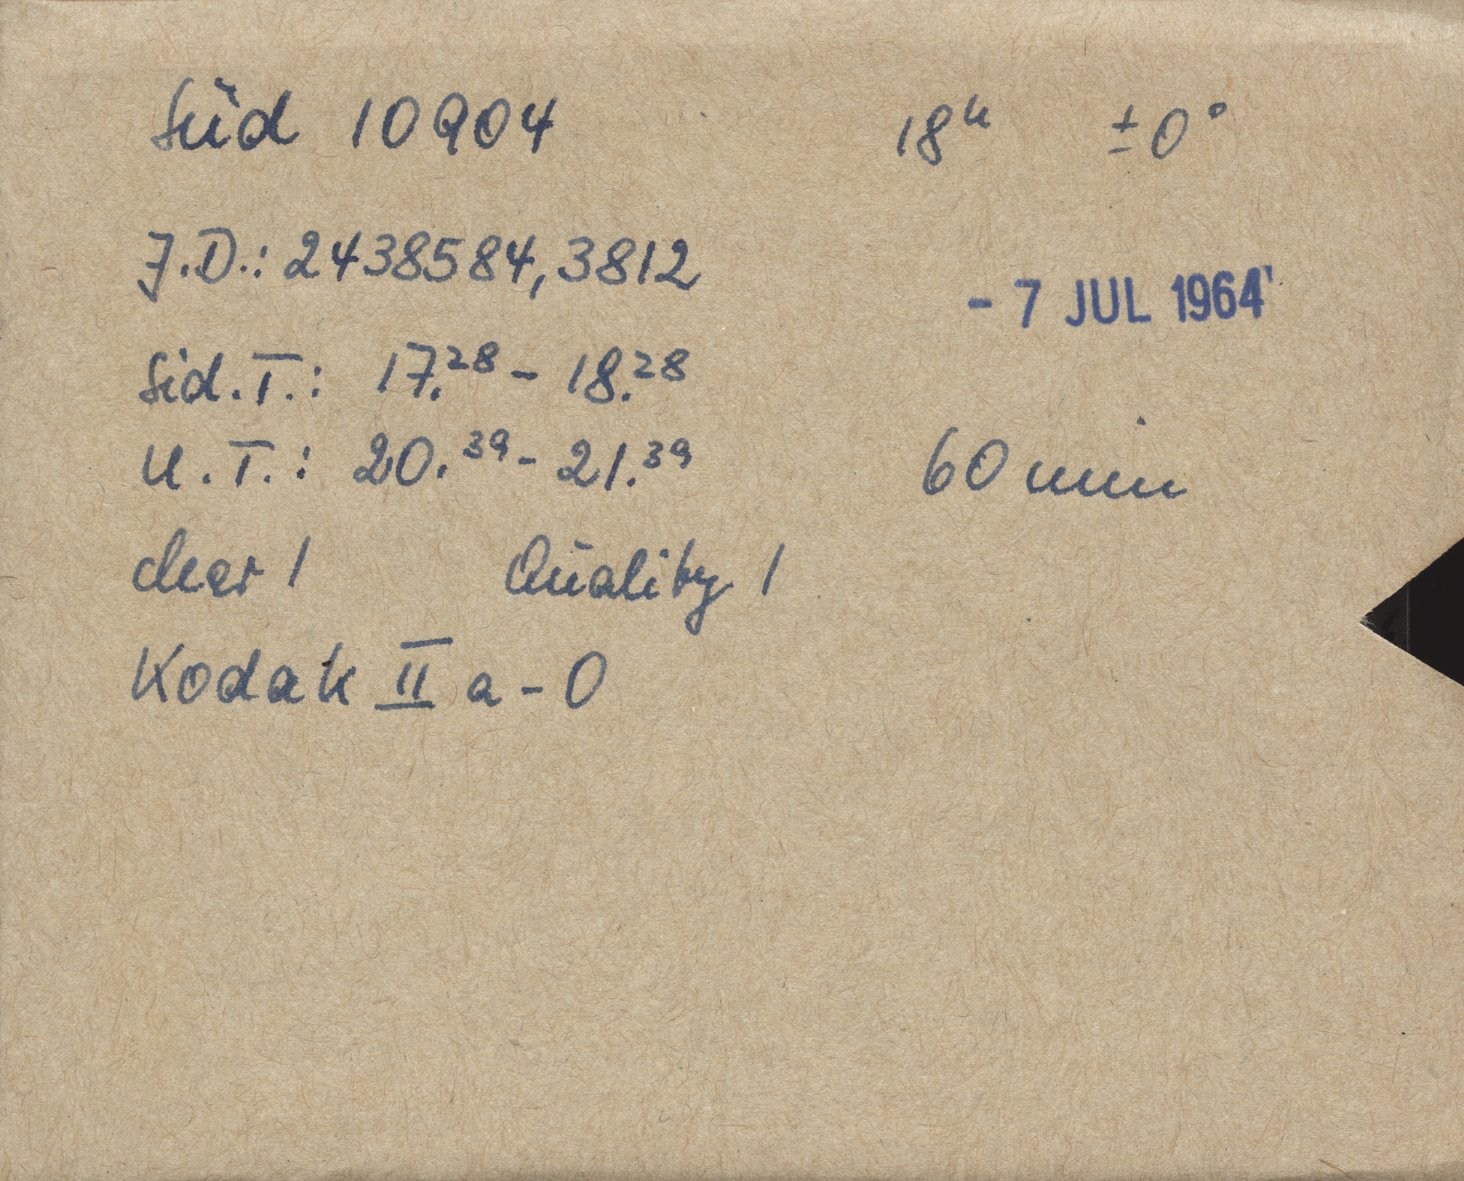 Süd 10904 18ʰ ±0°
J.D.: 2438584,3812
- 7 JUL 1964
Sid.T.: 17.²⁸ - 18.²⁸
U.T.: 20.³⁹ - 21.³⁹ 60 min
clear 1 Quality 1
Kodak II a - O